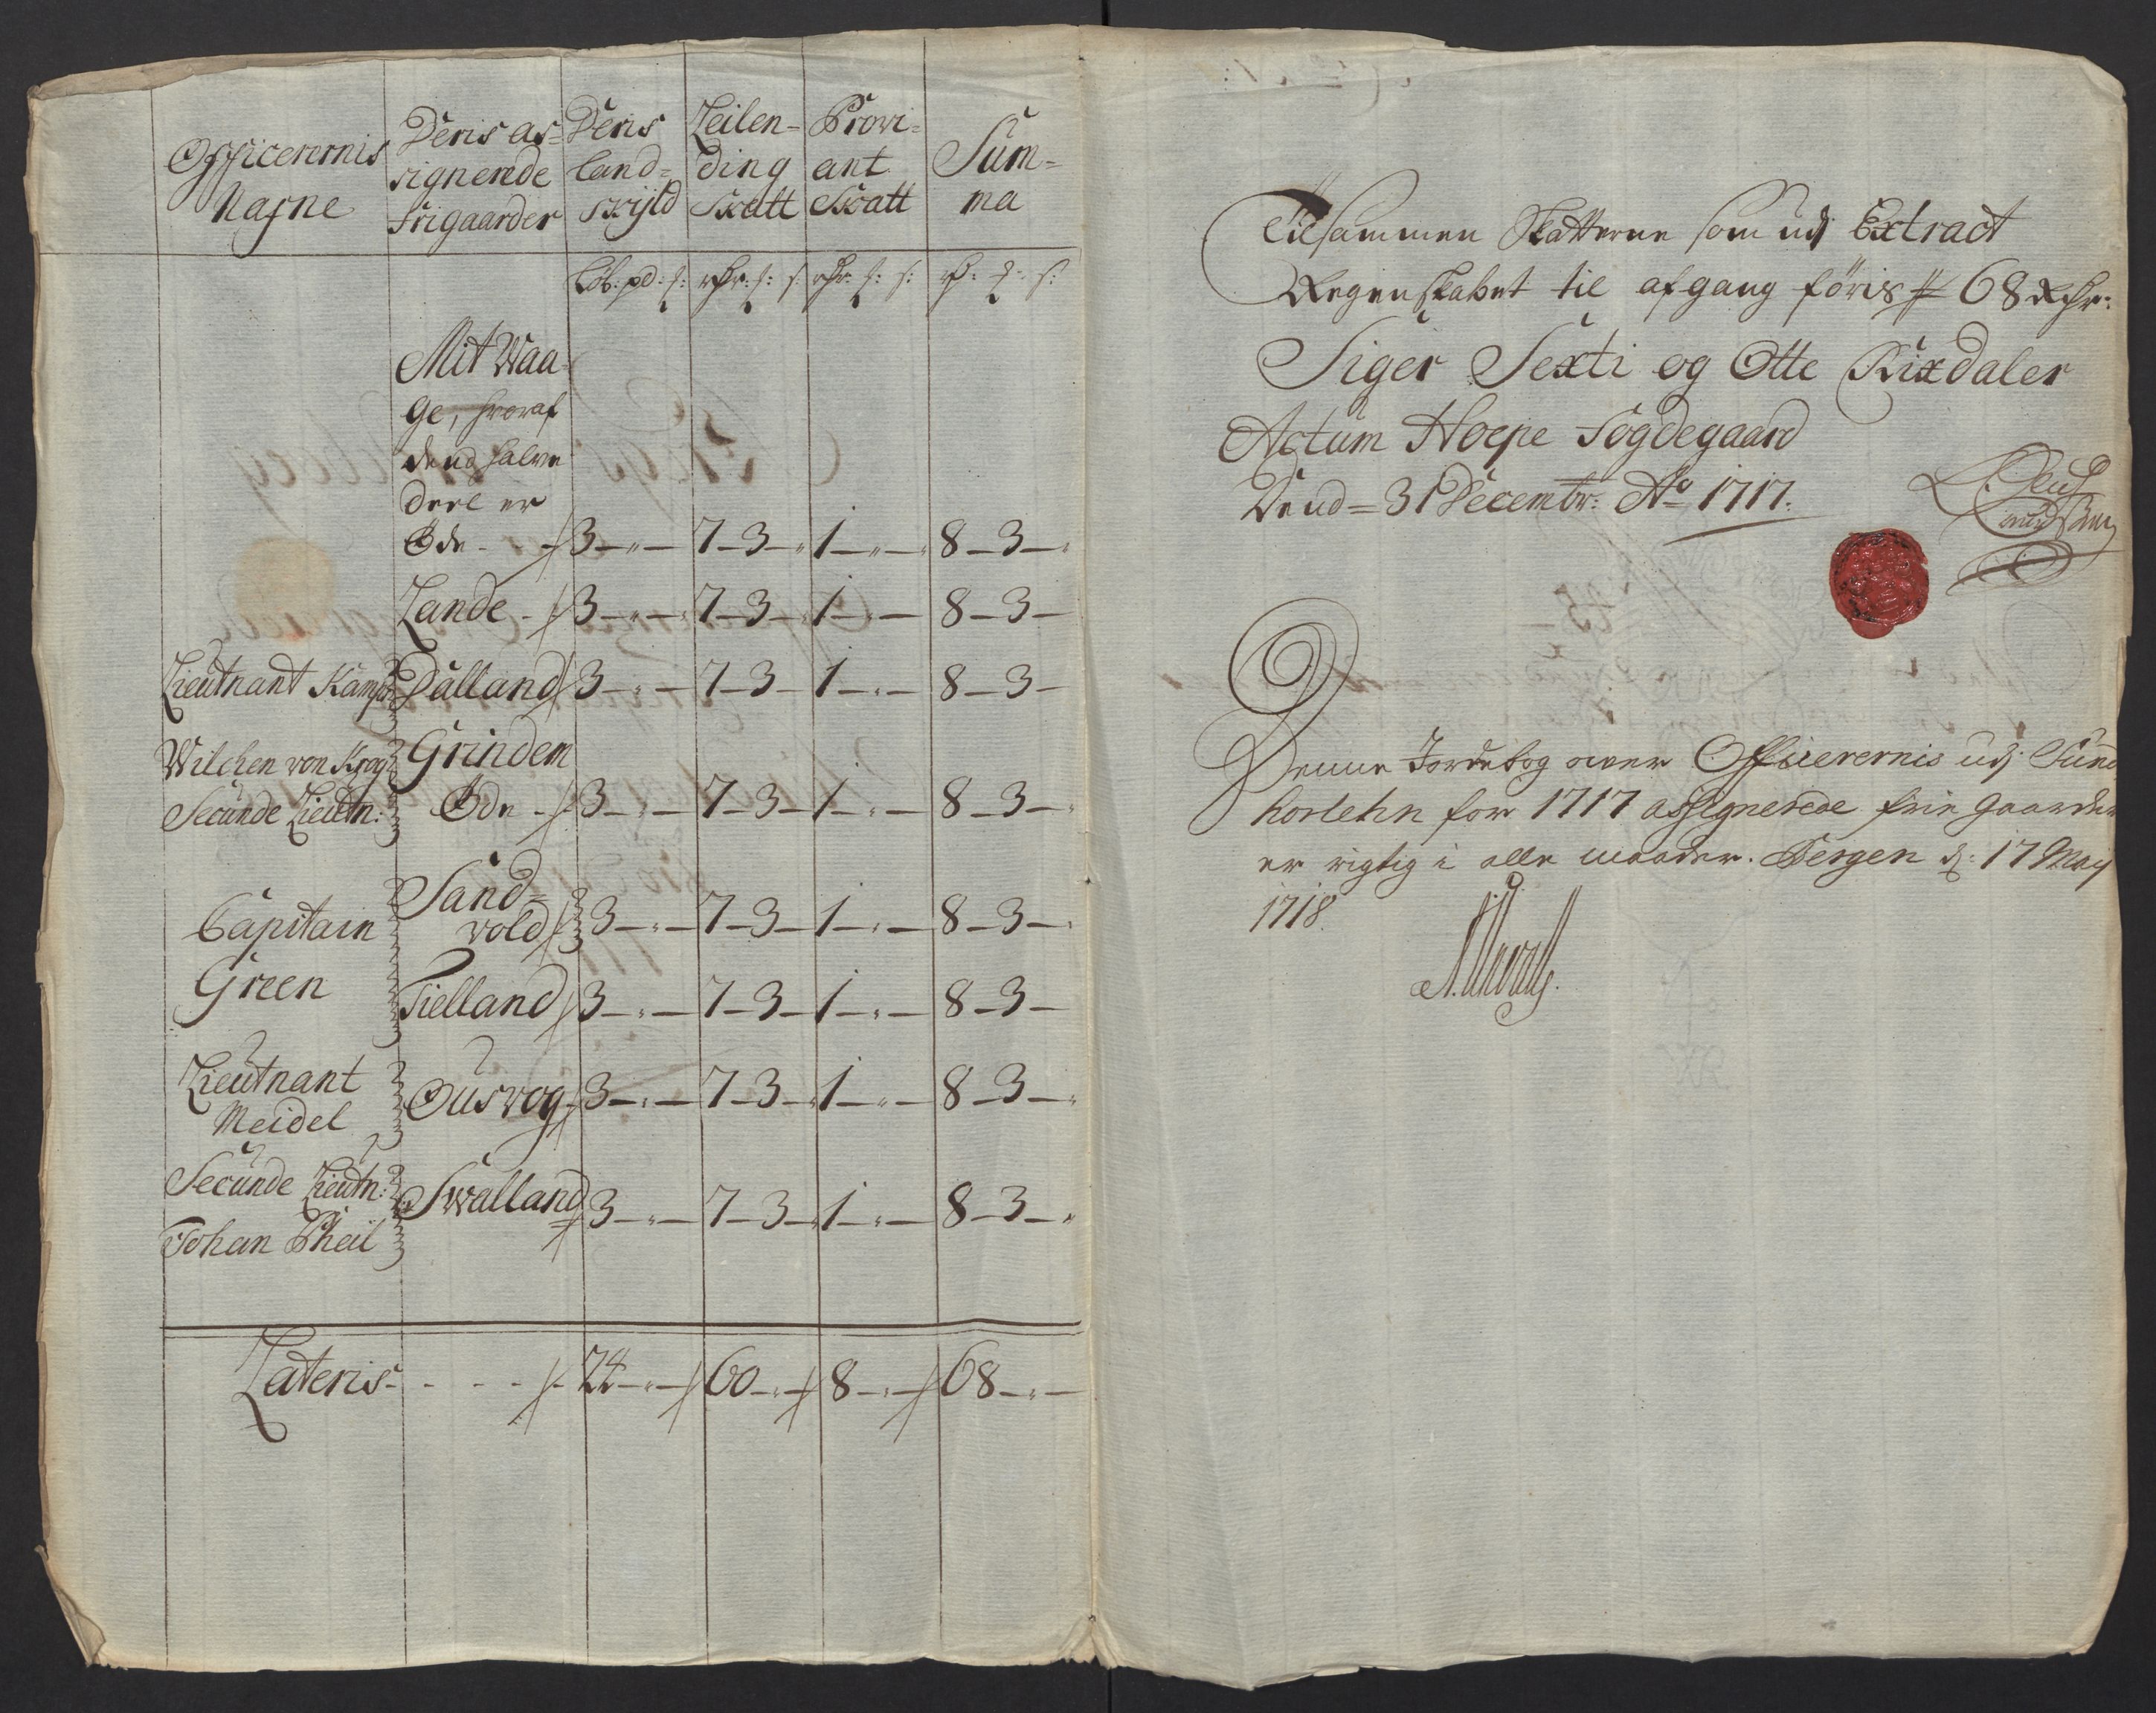 Officerernis
Nafne
Deris as-
signerede
Frigaarder
Deris
land-
skyld
Leilen-
ding
Skatt
Provi-
ant
Skatt
Sum-
ma
Løb: pd: s: rhr: s: s: s:
Mit Waa-
ge, hvoraf
dend halve
deel er
Øde - 3 - " - 7 - 3 - " 1 - " - 8 - 3 - "
Lande - 3 - " - 7 - 3 - 1 - " - 8 - 3 -
Lieutnant Kamp Dalland 3 - " - 7 - 3 - 1 - " - 8 - 3 -
Wilchen von Krog Grindem
Secunde Lieutn: Øde - 3 - " - 7 - 3 - 1 - " - 8 - 3 - "
Sand=
Capitain vold 3 - " - 7 - 3 - 1 - " - 8 - 3 - "
Green Tielland 3 - " - 7 - 3 - 1 - " - 8 - 3 -
Lieutnant
Meidel Ousvog 3 - " - 7 - 3 - " 1 - " - 8 - 3 - "
Secunde Lieutn: Swalland 3 - " - 7 - 3 - " 1 - " - 8 - 3 - "
Johan Pheil
Lateris - - - - 24 - " - 60 - " - 8 - " - 68 - " -
Tilsammen Skatterne som udj Extract
Regenskabet til afgang føris 68 Rdhr:
Siger Sexti og Otte Rixdaler
Actum Hope Fogdegaard
Dend = 31 Decembr: Ao 1717.
Denne Jordebog over Officerernis udj Sund
horlehn for 1717 assignerede frie gaarder
er rigtig i alle maader. Bergen d: 17 Maij
1718.